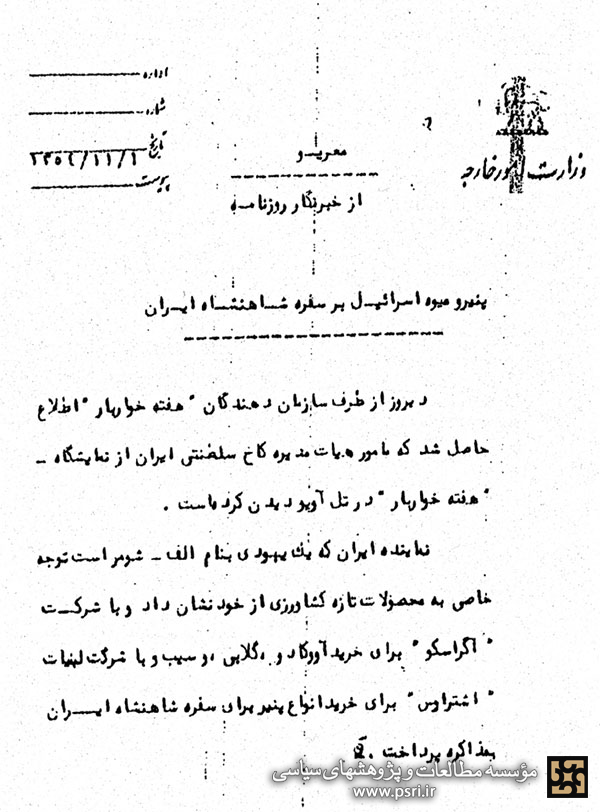 وزارت امور خارجه
اداره
شماره
تاریخ ۲۳۵۴/۱۱/۱
پیوست
معریو
از خبرنگار روزنامه
پنیر و میوه اسرائیل بر سفره شاهنشاه ایران
دیروز از طرف سازمان دهندگان "هفته خواربار" اطلاع
حاصل شد که مامور هیات مدیره کاخ سلطنتی ایران از نمایشگاه -
"هفته خواربار" در تل آویو دیدن کرده است .
نماینده ایران که یک یهودی بنام الف - شومر است توجه
خاصی به محصولات تازه کشاورزی از خود نشان داد و با شرکت
"اگراسکو" برای خرید آووکادو ، گلابی ، و سیب و با شرکت لبنیات
"اشتراوس" برای خرید انواع پنیر برای سفره شاهنشاه ایران
بمذاکره پرداخت .
مؤسسه مطالعات و پژوهشهای سیاسی
www.psri.ir